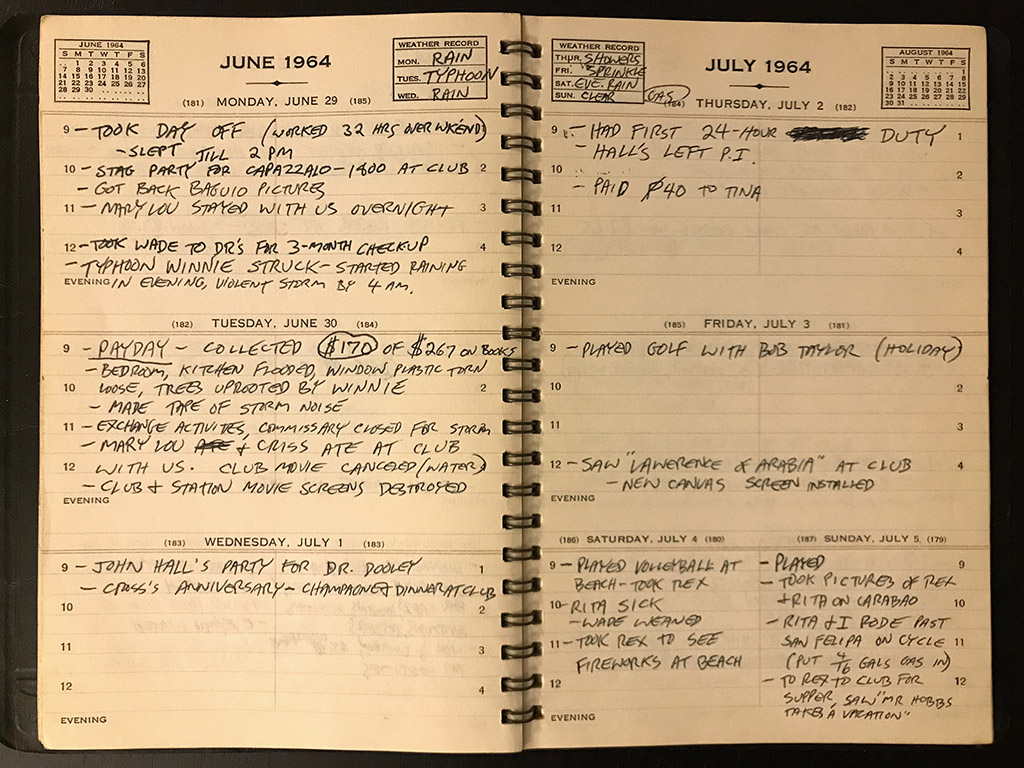 JUNE 1964
S M T W T F S
1 2 3 4 5 6
7 8 9 10 11 12 13
14 15 16 17 18 19 20
21 22 23 24 25 26 27
28 29 30
JUNE 1964
WEATHER RECORD
MON. RAIN
TUES. TYPHOON
WED. RAIN
(181) MONDAY, JUNE 29 (185)
9 - TOOK DAY OFF (WORKED 32 HRS OVER WKEND)
- SLEPT TILL 2 PM
10 - STAG PARTY FOR CAPAZZALO - 1800 AT CLUB 2
- GOT BACK BAGUIO PICTURES
11 - MARY LOU STAYED WITH US OVERNIGHT 3
12 - TOOK WADE TO DR'S FOR 3-MONTH CHECKUP 4
- TYPHOON WINNIE STRUCK - STARTED RAINING
EVENING IN EVENING, VIOLENT STORM BY 4 AM.
(182) TUESDAY, JUNE 30 (184)
9 - PAYDAY - COLLECTED $170 OF $267 ON BOOKS
- BEDROOM, KITCHEN FLOODED, WINDOW PLASTIC TORN
10 LOOSE, TREES UPROOTED BY WINNIE 2
- MADE TAPE OF STORM NOISE
11 - EXCHANGE ACTIVITES, COMMISSARY CLOSED FOR STORM
- MARY LOU ATE & CRISS ATE AT CLUB
12 WITH US. CLUB MOVIE CANCELED (WATER)
- CLUB & STATION MOVIE SCREENS DESTROYED
EVENING
(183) WEDNESDAY, JULY 1 (183)
9 - JOHN HALL'S PARTY FOR DR. DOOLEY 1
- CROSS'S ANNIVERSARY - CHAMPAGNE & DINNER AT CLUB
10 2
11 3
12 4
EVENING
WEATHER RECORD
THUR. SHOWERS
FRI. SPRINKLE
SAT. EVE. RAIN
SUN. CLEAR
GAS
JULY 1964
AUGUST 1964
S M T W T F S
1
2 3 4 5 6 7 8
9 10 11 12 13 14 15
16 17 18 19 20 21 22
23 24 25 26 27 28 29
30 31
(184) THURSDAY, JULY 2 (182)
9 - HAD FIRST 24-HOUR DUTY 1
- HALL'S LEFT P.I.
10 2
- PAID ₱40 TO TINA
11 3
12 4
EVENING
(185) FRIDAY, JULY 3 (181)
9 - PLAYED GOLF WITH BOB TAYLOR (HOLIDAY)
10 2
11 3
12 - SAW "LAWERENCE OF ARABIA" AT CLUB 4
- NEW CANVAS SCREEN INSTALLED
EVENING
(186) SATURDAY, JULY 4 (180)
9 - PLAYED VOLLEYBALL AT
BEACH - TOOK REX
10 - RITA SICK
- WADE WEANED
11 - TOOK REX TO SEE
FIREWORKS AT BEACH
12
EVENING
(187) SUNDAY, JULY 5, (179)
- PLAYED 9
- TOOK PICTURES OF REX
& RITA ON CARABAO 10
- RITA & I RODE PAST
SAN FELIPA ON CYCLE 11
(PUT 4/6 GALS GAS IN)
- TO REX TO CLUB FOR 12
SUPPER, SAW "MR HOBBS
TAKES A VACATION"